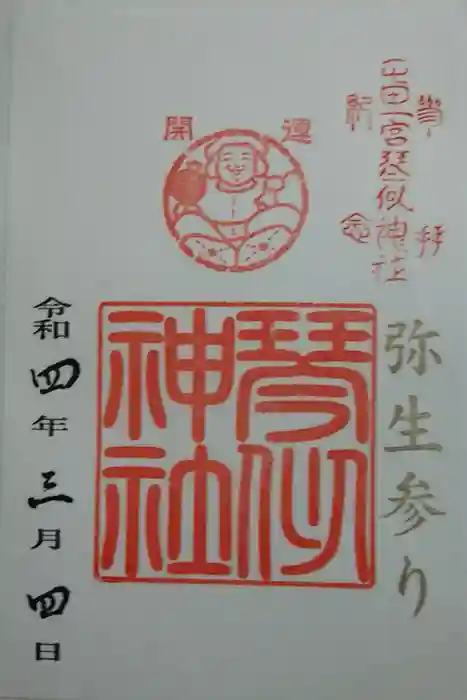 参拝
屯田一宮琴似神社
紀念
開運
弥生参り
琴似
神社
令和四年三月四日